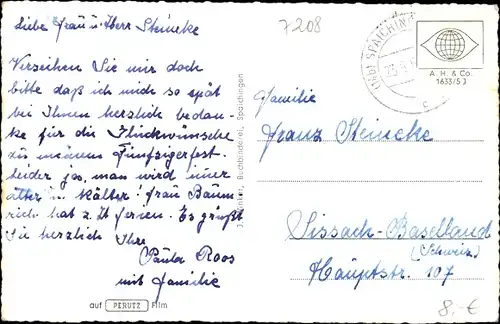 Liebe Frau u. Herr Steineke
Verzeihen Sie mir doch
bitte daß ich mich so spät
bei Ihnen herzlich bedan-
ke für die Glückwünsche
zu meinem Fünfzigerfest.
leider ja, man wird immer
älter u. kälter! Frau Baum
rich hat z. Zt ferien. Es grüßt
Sie herzlich Ihre
Paula Roos
mit Familie
auf PERUTZ Film
Buchbinderei, Spaichingen
7208
SPAICHINGEN
c
A. H. & Co.
1633/5 J
Familie
Franz Steineke
Sissach-Baselland
(Schweiz)
Hauptstr. 107
8,-€